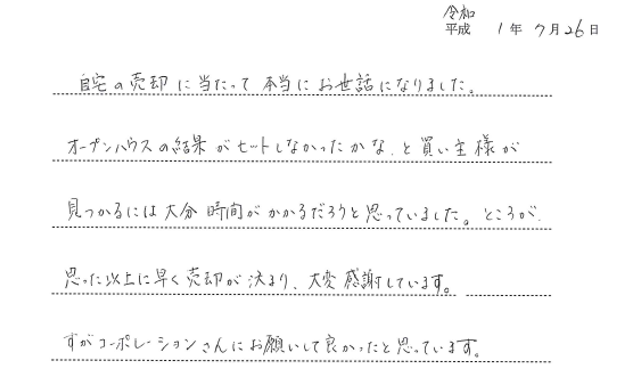 令和
平成 1年 7月26日
自宅の売却に当たって本当にお世話になりました。
オープンハウスの結果がヒットしなかったかな、と買い主様が
見つかるには大分時間がかかるだろうと思っていました。ところが、
思った以上に早く売却が決まり、大変感謝しています。
すがコーポレーションさんにお願いして良かったと思っています。